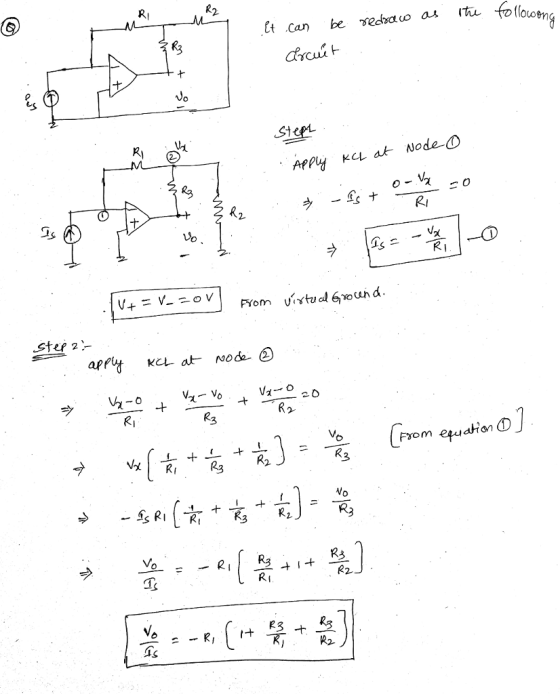 Q
R1 R2
It can be redraw as the following
circuit
R3
is
- + +
Vo
-
Step1
Apply KCL at Node ①
R1 ② Vx
⇒ - Is + (0 - Vx)/R1 = 0
R3 R2
① - + +
Is Vo.
-
⇒ Is = - Vx/R1 — ①
V+ = V- = 0V From Virtual Ground.
Step 2:-
apply KCL at Node ②
⇒ (Vx-0)/R1 + (Vx-Vo)/R3 + (Vx-0)/R2 = 0
⇒ Vx [1/R1 + 1/R3 + 1/R2] = Vo/R3 [From equation ①].
⇒ - Is R1 [1/R1 + 1/R3 + 1/R2] = Vo/R3
⇒ Vo/Is = - R1 [R3/R1 + 1 + R3/R2]
Vo/Is = - R1 (1 + R3/R1 + R3/R2)